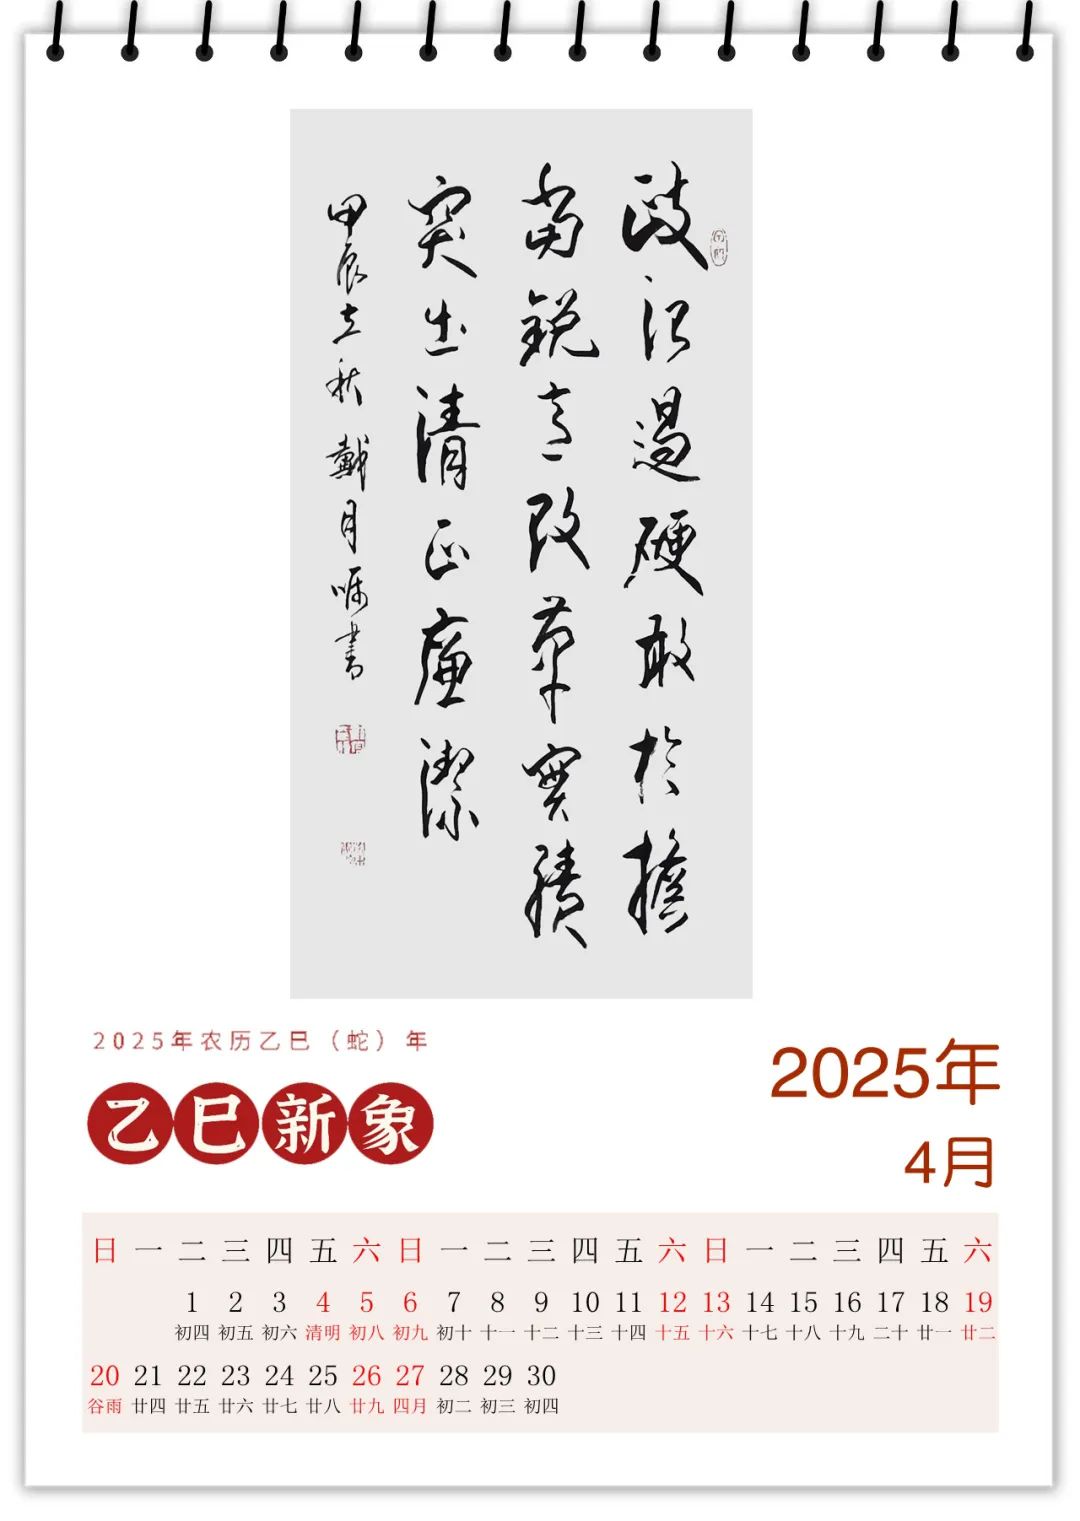 政治過硬敢於擔
當銳意改革實績
突出清正廉潔
甲辰立秋 戴月嘱書
2025年农历乙巳（蛇）年
乙巳新象
2025年
4月
日 一 二 三 四 五 六 日 一 二 三 四 五 六 日 一 二 三 四 五 六
1 2 3 4 5 6 7 8 9 10 11 12 13 14 15 16 17 18 19
初四 初五 初六 清明 初八 初九 初十 十一 十二 十三 十四 十五 十六 十七 十八 十九 二十 廿一 廿二
20 21 22 23 24 25 26 27 28 29 30
谷雨 廿四 廿五 廿六 廿七 廿八 廿九 四月 初二 初三 初四